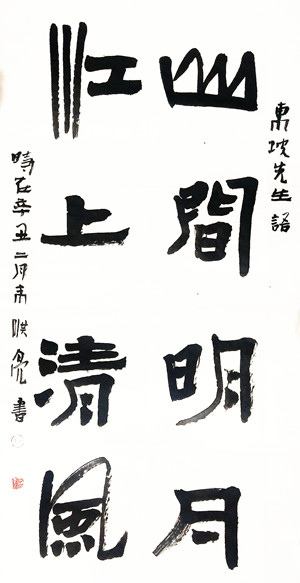 東坡先生語
山間明月
江上清風
時在辛丑二月洪亮書